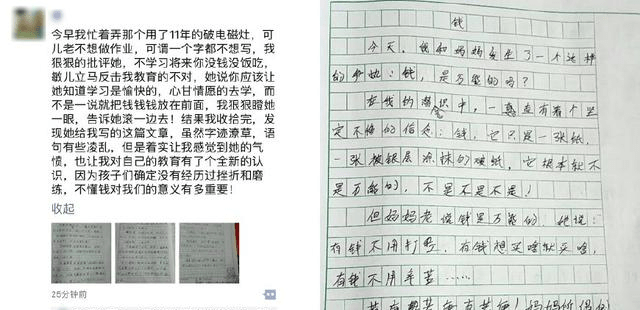 今早我忙着弄那个用了11年的破电磁灶，可
儿老不想做作业，可谓一个字都不想写，我
狠狠的批评她，不学习将来你没钱没饭吃，
敏儿立马反击我教育的不对，她说你应该让
她知道学习是愉快的，心甘情愿的去学，而
不是一说就把钱钱钱放在前面，我狠狠瞪她
一眼，告诉她滚一边去！结果我收拾完，发
现她给我写的这篇文章，虽然字迹潦草，语
句有些凌乱，但是着实让我感觉到她的气
愤，也让我对自己的教育有了个全新的认
识，因为孩子们确定没有经历过挫折和磨
练，不懂钱对我们的意义有多重要！
收起
25分钟前
钱
今天，我和妈妈发生了一个这样
的争执：钱，是万能的吗？
在我的意识中，一直有着个坚
定不悔的信念：钱，它只是一张纸，
一张被银层涂抹的硬纸，它根本就不
是万能的，不是不是不是！
但妈妈老说钱是万能的，她说：
有钱不用打骂，有钱想买啥就买啥，
有钱不用辛苦……